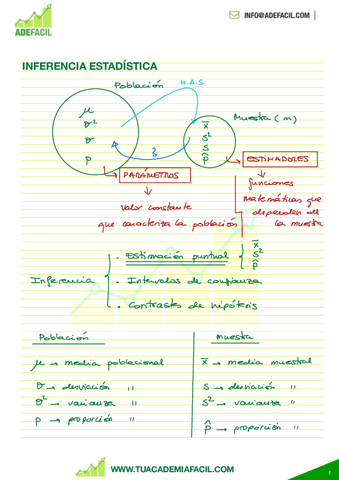 ADEFACIL
INFO@ADEFACIL.COM
INFERENCIA ESTADÍSTICA
Población
M.A.S
Muestra (n)
μ
σ²
σ
p
x̄
s²
s
p̂
?
PARÁMETROS
ESTIMADORES
valor constante
que caracteriza la población
funciones
Matemáticas que
dependen de
la muestra
Inferencia
. Estimación puntual
x̄
s²
p̂
. Intervalos de confianza
. Contrastes de hipótesis
Población
Muestra
μ → media poblacional
x̄ → media muestral
σ → desviación "
s → desviación "
σ² → varianza "
s² → varianza "
p → proporción "
p̂ → proporción "
WWW.TUACADEMIAFACIL.COM
1